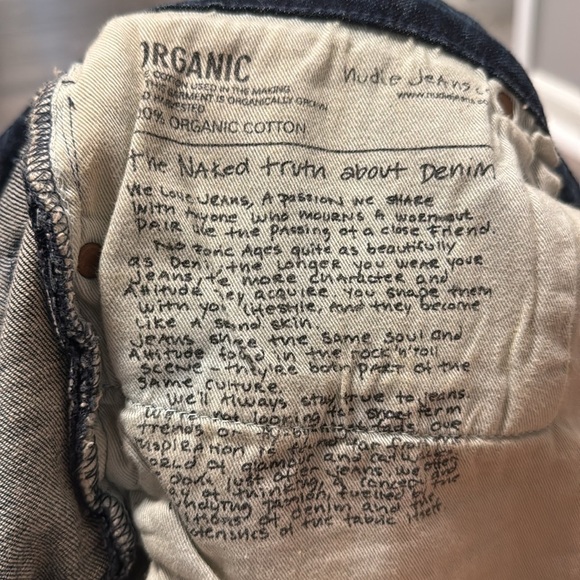 ORGANIC
COTTON USED IN THE MAKING
GARMENT IS ORGANICALLY GROWN
HARVESTED
100% ORGANIC COTTON
nudie jeans co
www.nudiejeans.co
the NAKED truth about Denim
We Love JEANS, A passion we share
With Anyone who mourns A wornout
pair like the passing of a close friend.
No Fabric Ages quite as beautifully
as Denim. the longer you wear your
jeans the more character and
Attitude they acquire. You shape them
with your lifestyle, And they become
like A second skin.
jeans share the same soul and
Attitude found in the rock'n'roll
scene - they're both part of the
same culture.
We'll Always stay true to jeans.
We're not looking for short term
trends or fads. Our
inspiration is
world of glamour and
don't just offer jeans we offer
way of thinking, A concept and
fashion, fuelled by
traditions of denim and the
characteristics of the fabric itself